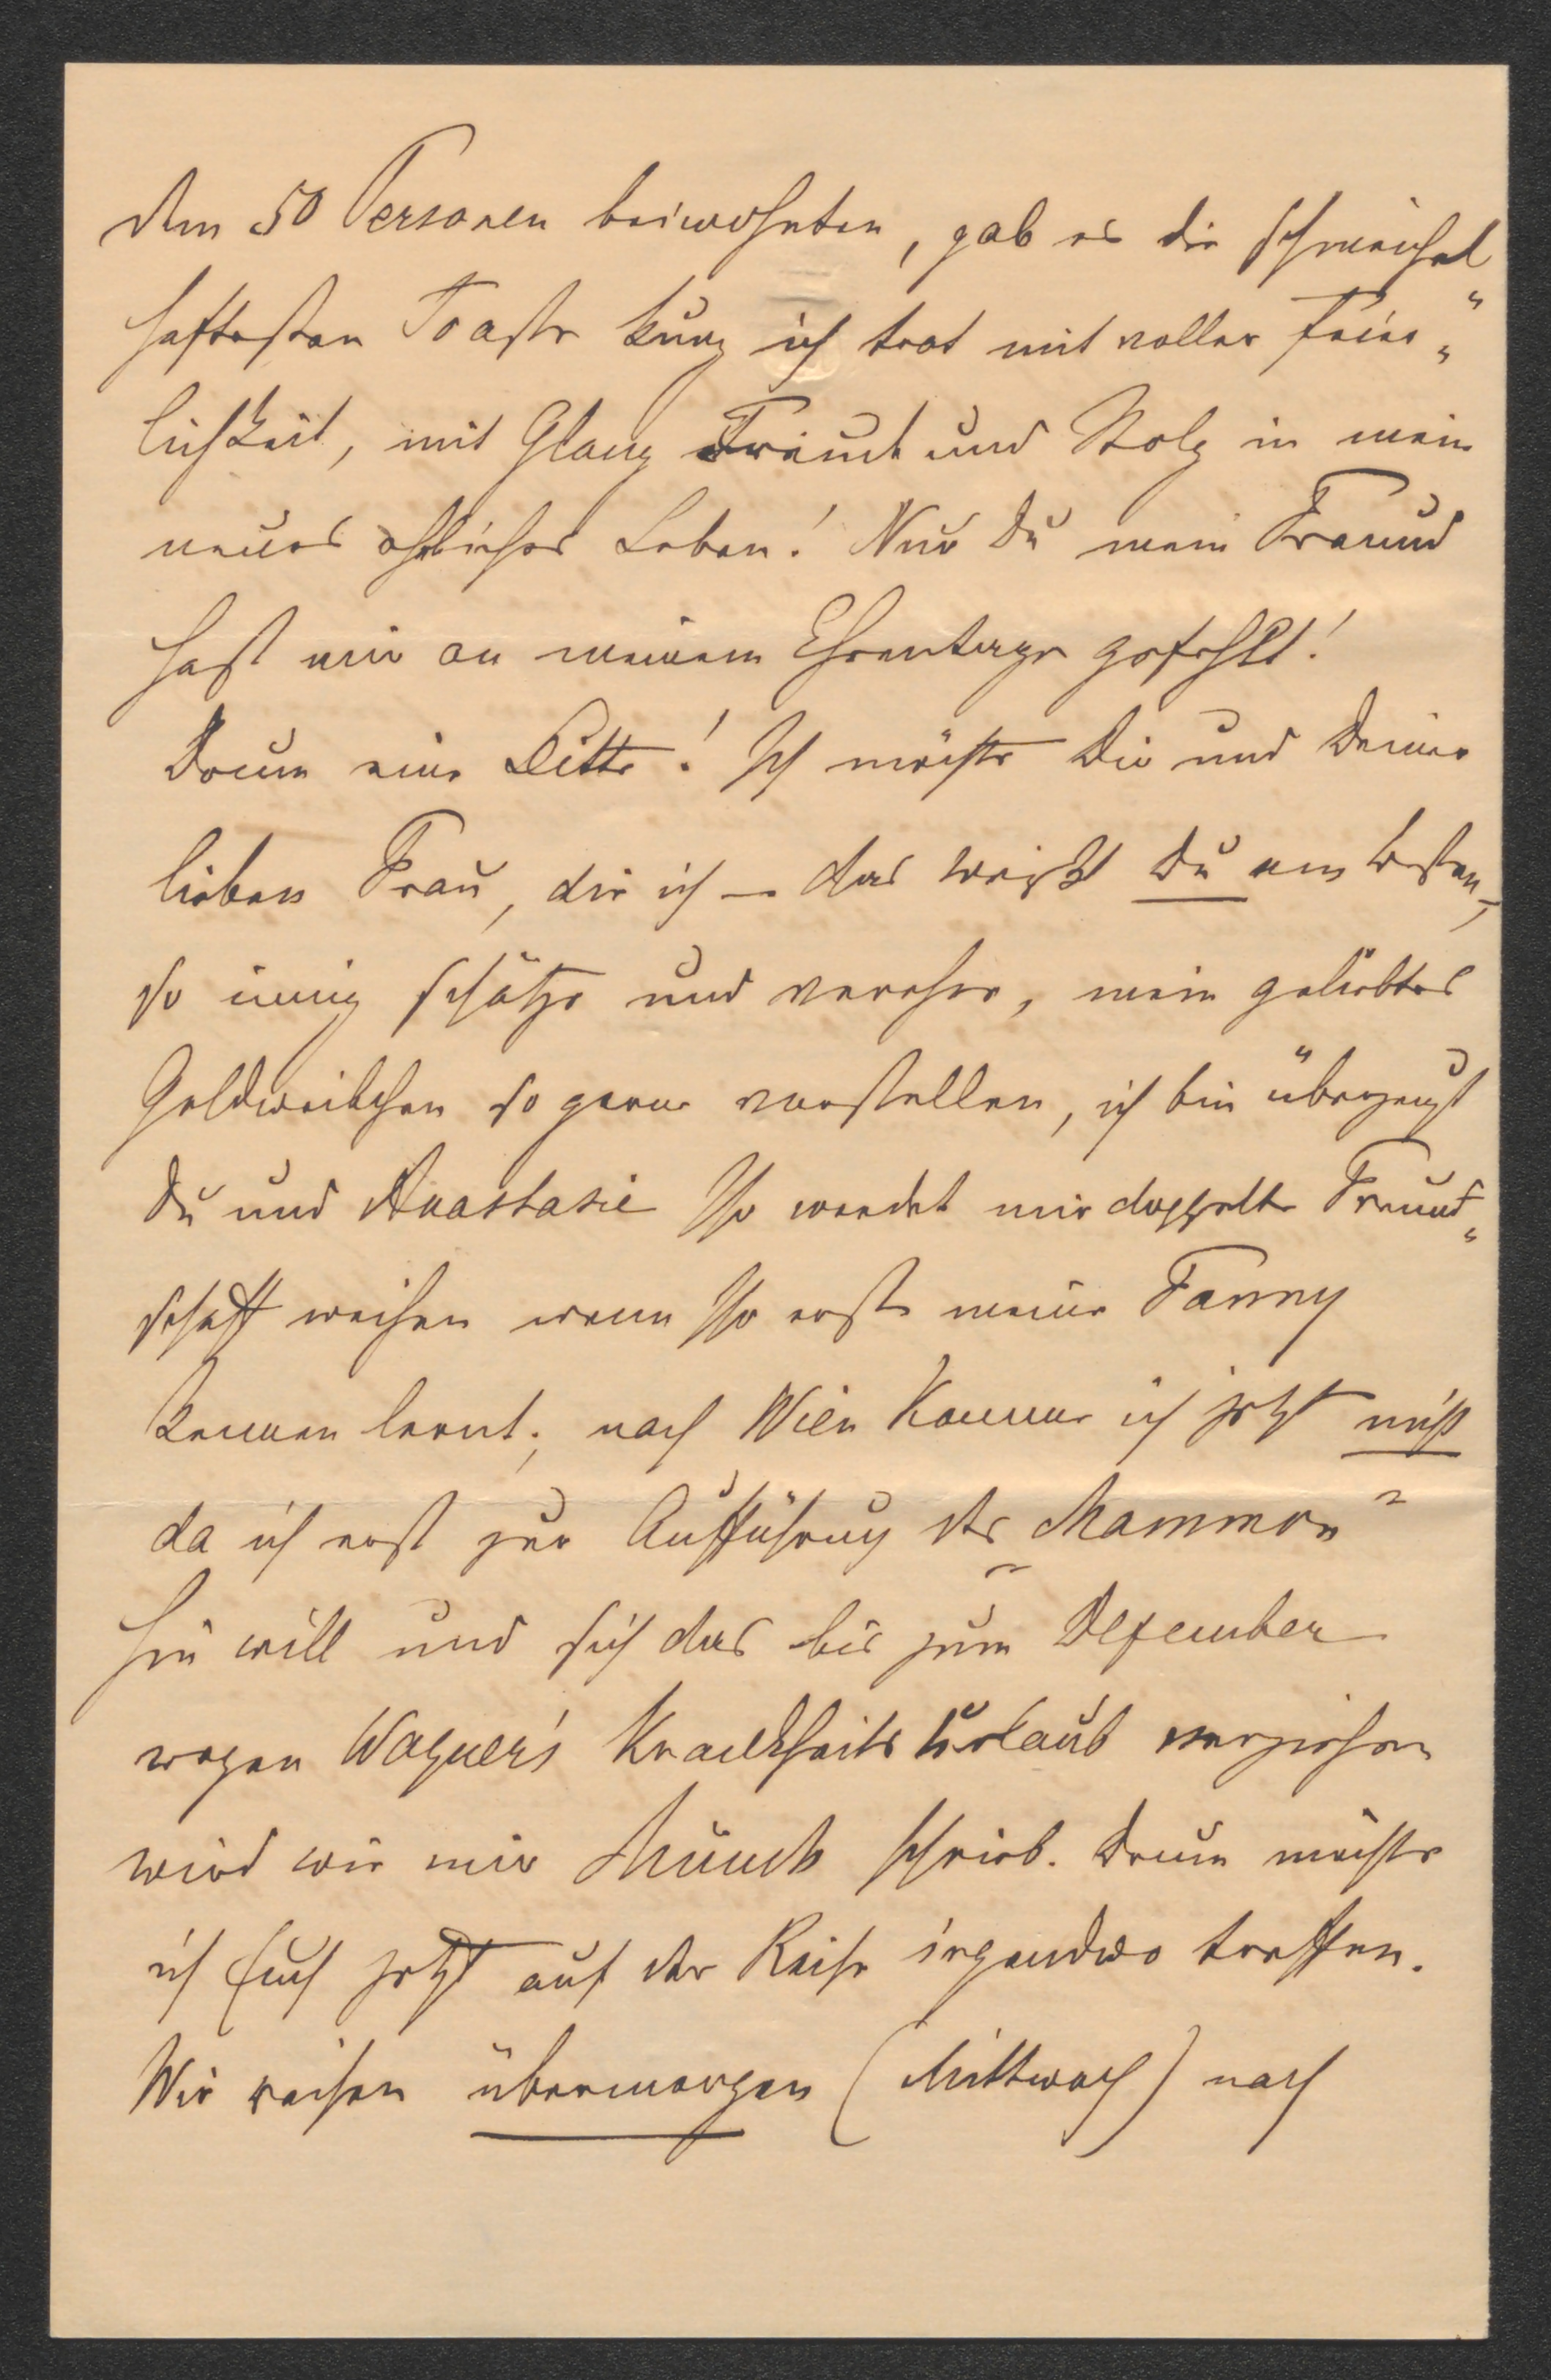 dem 50 Personen beiwohnten, gab es die schmeichel„
haftesten Toaste kurz ich trat mit voller Feier„
lichkeit, mit Glanz Freude und Stolz in mein
neues eheliches Leben! Nur Du mein Freund
hast mir an meinem Ehrentage gefehlt!
Drum eine Bitte! Ich möchte Dir und Deiner
lieben Frau, die ich – das weißt Du am besten,–
so innig schätze und verehre, mein geliebtes
Goldweibchen so gerne vorstellen, ich bin überzeugt
Du und Anastasie Ihr werdet mir doppelte Freund„
schaft weihen wenn Ihr erst meine Fanny
kennen lernt; nach Wien komme ich jetzt nicht
da ich erst zur Aufführung des Mammon"
hin will und sich das bis zum Dezember
wegen Wagner's Krankheits Urlaub verziehen
wird wie mir schrieb. Drum möchte
ich Euch jetzt auf der Reise irgendwo treffen.
Wir reisen übermorgen (Mittwoch) nach